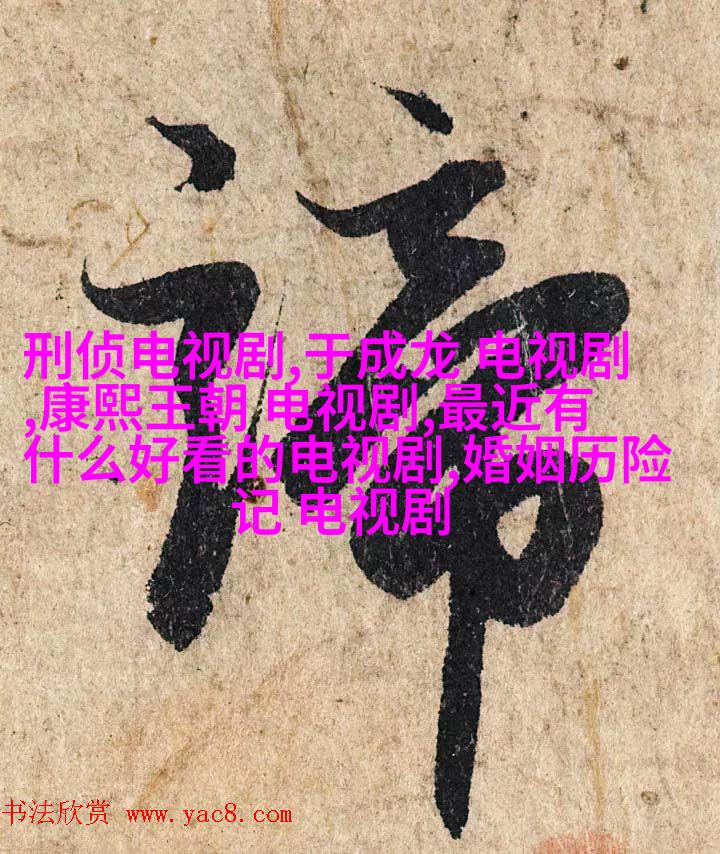 谛
刑侦电视剧,于成龙 电视剧
,康熙王朝 电视剧,最近有
什么好看的电视剧,婚姻历险
记 电视剧
书法欣赏 www.yac8.com